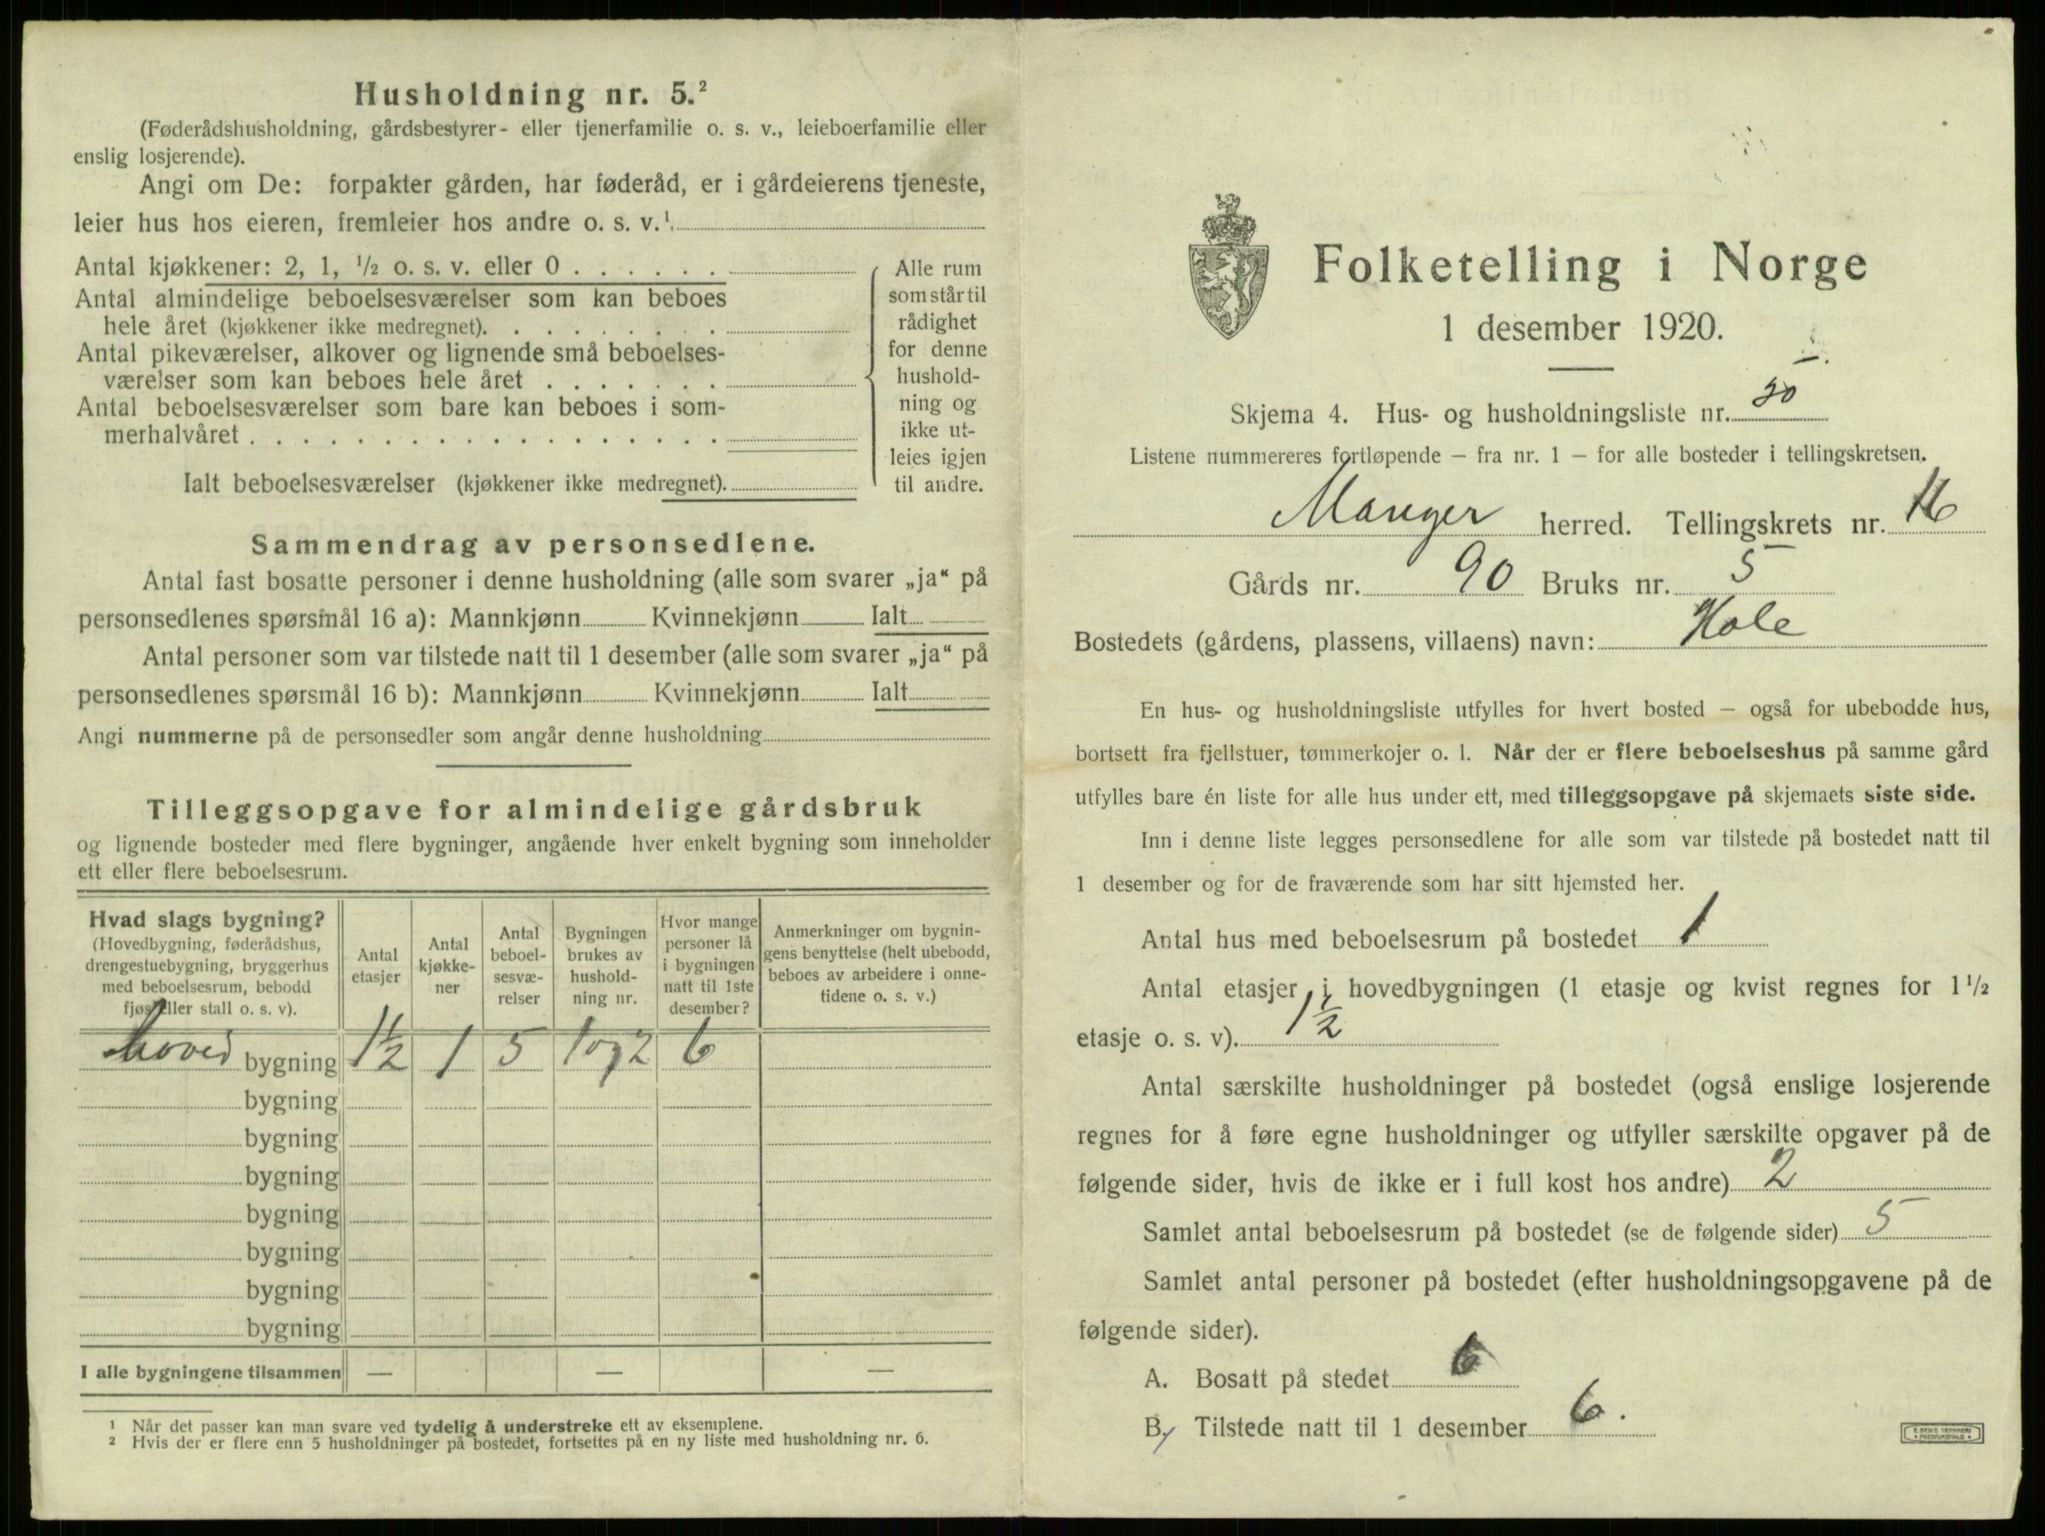 Husholdning nr. 5.²
(Føderådshusholdning, gårdsbestyrer- eller tjenerfamilie o. s. v., leieboerfamilie eller
enslig losjerende).
Angi om De: forpakter gården, har føderåd, er i gårdeierens tjeneste,
leier hus hos eieren, fremleier hos andre o. s. v.¹
Antal kjøkkener: 2, 1, ½ o. s. v. eller 0
Antal almindelige beboelsesværelser som kan beboes
hele året (kjøkkener ikke medregnet).
Antal pikeværelser, alkover og lignende små beboelses-
værelser som kan beboes hele året
Antal beboelsesværelser som bare kan beboes i som-
merhalvåret
Ialt beboelsesværelser (kjøkkener ikke medregnet).
Alle rum
som står til
rådighet
for denne
hushold-
ning og
ikke ut-
leies igjen
til andre.
Sammendrag av personsedlene.
Antal fast bosatte personer i denne husholdning (alle som svarer „ja“ på
personsedlenes spørsmål 16 a): Mannkjønn Kvinnekjønn Ialt
Antal personer som var tilstede natt til 1 desember (alle som svarer „ja“ på
personsedlenes spørsmål 16 b): Mannkjønn Kvinnekjønn Ialt
Angi nummerne på de personsedler som angår denne husholdning
Tilleggsopgave for almindelige gårdsbruk
og lignende bosteder med flere bygninger, angående hver enkelt bygning som inneholder
ett eller flere beboelsesrum.
Hvad slags bygning?
(Hovedbygning, føderådshus,
drengestuebygning, bryggerhus
med beboelsesrum, bebodd
fjøs eller stall o. s. v).
Antal
etasjer
Antal
kjøkke-
ner
Antal
beboel-
sesvæ-
relser
Bygningen
brukes av
hushold-
ning nr.
Hvor mange
personer lå
i bygningen
natt til 1ste
desember?
Anmerkninger om bygnin-
gens benyttelse (helt ubebodd,
beboes av arbeidere i onne-
tidene o. s. v.)
hoved bygning 1½ 1 5 1 og 2 6
bygning
bygning
bygning
bygning
bygning
bygning
bygning
I alle bygningene tilsammen — — —
¹ Når det passer kan man svare ved tydelig å understreke ett av eksemplene.
² Hvis der er flere enn 5 husholdninger på bostedet, fortsettes på en ny liste med husholdning nr. 6.
Folketelling i Norge
1 desember 1920.
Skjema 4. Hus- og husholdningsliste nr.
Listene nummereres fortløpende – fra nr. 1 – for alle bosteder i tellingskretsen.
Manger herred. Tellingskrets nr. 16
Gårds nr. 90 Bruks nr. 5
Bostedets (gårdens, plassens, villaens) navn: Hole
En hus- og husholdningsliste utfylles for hvert bosted – også for ubebodde hus,
bortsett fra fjellstuer, tømmerkojer o. l. Når der er flere beboelseshus på samme gård
utfylles bare én liste for alle hus under ett, med tilleggsopgave på skjemaets siste side.
Inn i denne liste legges personsedlene for alle som var tilstede på bostedet natt til
1 desember og for de fraværende som har sitt hjemsted her.
Antal hus med beboelsesrum på bostedet 1
Antal etasjer i hovedbygningen (1 etasje og kvist regnes for 1½
etasje o. s. v). 1½
Antal særskilte husholdninger på bostedet (også enslige losjerende
regnes for å føre egne husholdninger og utfyller særskilte opgaver på de
følgende sider, hvis de ikke er i full kost hos andre) 2
Samlet antal beboelsesrum på bostedet (se de følgende sider) 5
Samlet antal personer på bostedet (efter husholdningsopgavene på de
følgende sider).
A. Bosatt på stedet 6
B. Tilstede natt til 1 desember 6.